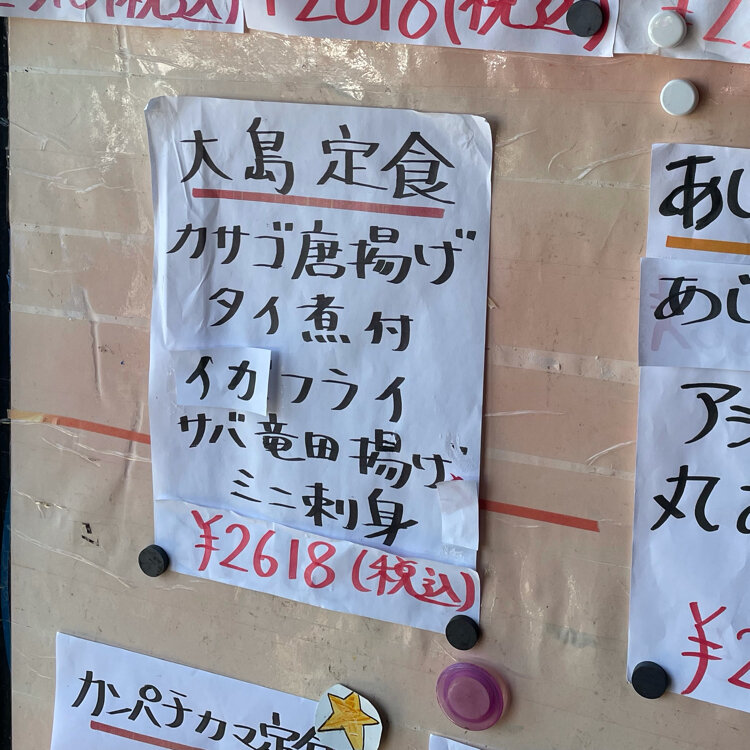 ¥2018(税込)
大島定食
カサゴ唐揚げ
タイ煮付
イカフライ
サバ竜田揚げ
ミニ刺身
¥2618(税込)
カンパチカマ定食
あじ
あじ
アジ
丸
¥2